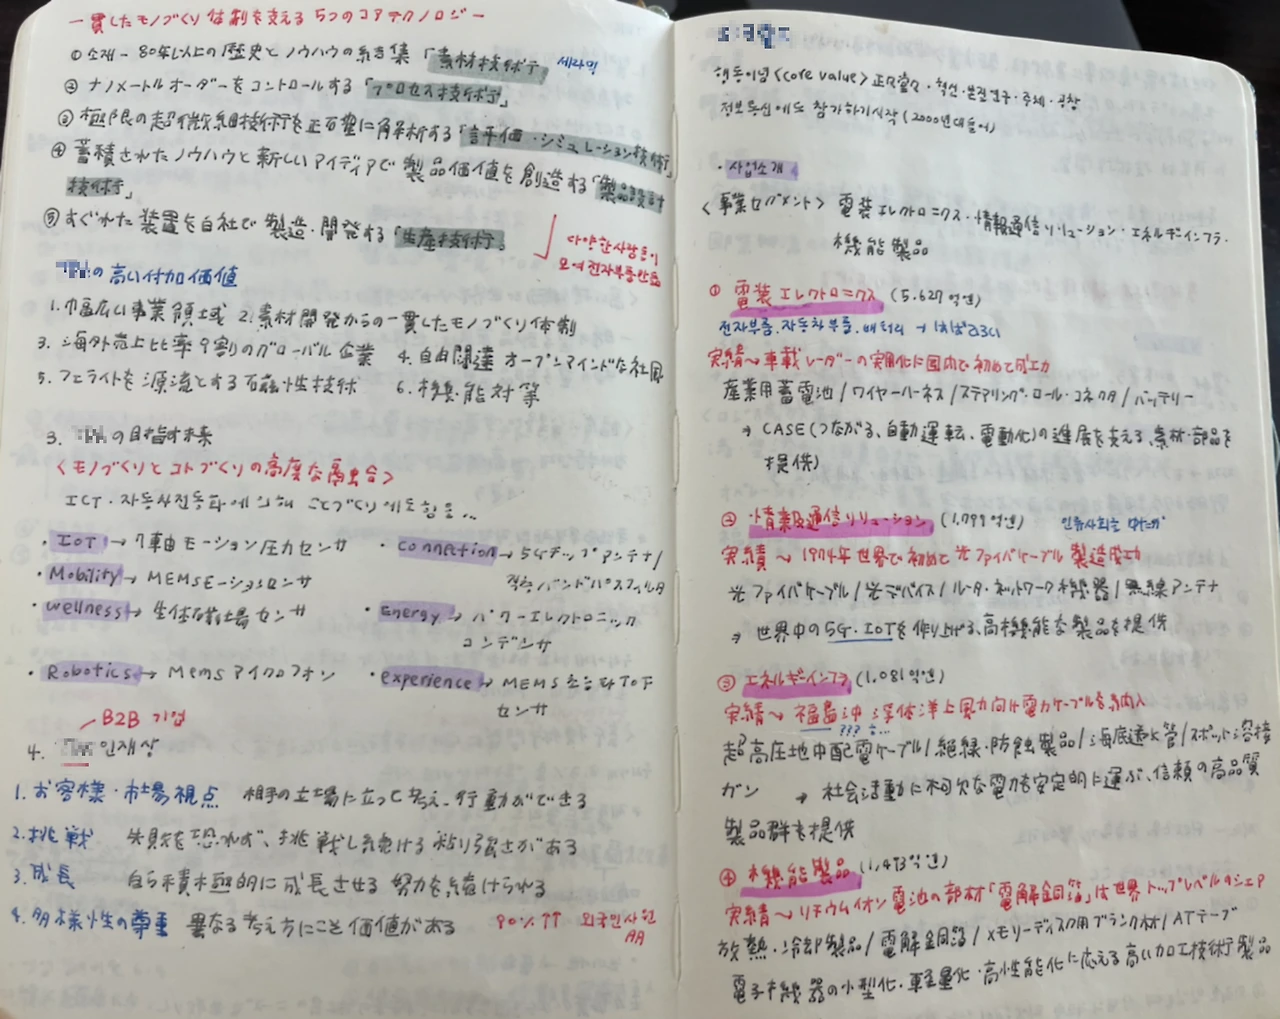 一貫したモノづくり体制を支える5つのコアテクノロジー
① 소재 - 80年以上の歴史とノウハウの結集「素材技術」 세라믹
② ナノメートルオーダーをコントロールする「プロセス技術」
③ 極限の超微細技術を正確に解析する「評価・シミュレーション技術」
④ 蓄積されたノウハウと新しいアイディアで製品価値を創造する「製品設計
技術」
⑤ すぐれた装置を自社で製造・開発する「生産技術」
다양한 사람들이
모여 전자부품만듦
の高い付加価値
1. 幅広い事業領域 2. 素材開発からの一貫したモノづくり体制
3. 海外売上比率9割のグローバル企業 4. 自由闊達 オープンマインドな社風
5. フェライトを源流とする磁性技術 6. 機能対等
3. の目指す未来
<モノづくりとコトづくりの高度な融合>
ICT・자동차전동화에 ことづくり에도 힘씀...
・IoT → 7軸モーション圧力センサ
・Connection → 5Gチップアンテナ/
積層バンドパスフィルタ
・Mobility → MEMSモーションセンサ
・wellness → 生体磁場センサ
・Energy → パワーエレクトロニック
コンデンサ
・Robotics → Mems マイクロフォン
・experience → MEMS 초음파 ToF
センサ
B2B 기업
4. 인재상
1. お客様・市場視点 相手の立場に立って考え、行動ができる
2. 挑戦 失敗を恐れず、挑戦し続ける粘り強さがある
3. 成長 自ら積極的に成長させる努力を続けられる
4. 多様性の尊重 異なる考え方にこそ価値がある 90%↑↑ 외국인사원
行동이념 <core value> 正々堂々・혁신・본전연구・주체・공창
정보통신에도 참가하기시작 (2000년대들어)
・사업소개
<事業セグメント> 電装エレクトロニクス・情報通信ソリューション・エネルギーインフラ・
機能製品
① 電装エレクトロニクス (5.627억엔)
전자부품. 자동차부품. 배터리 →
実績 → 車載レーダーの実用化に国内で初めて成功
産業用蓄電池 / ワイヤーハーネス / ステアリング・ロール・コネクタ / バッテリー
→ CASE(つながる、自動運転、電動化)の進展を支える素材・部品を
提供)
② 情報通信ソリューション (1.799억엔) 인류사회는
実績 → 1974年世界で初めて光ファイバケーブル製造成功
光ファイバケーブル / 光デバイス / ルータ・ネットワーク機器 / 無線アンテナ
→ 世界中の5G・IoTを作り上げる、高機能な製品を提供
③ エネルギーインフラ (1.081억엔)
実績 → 福島沖 浮体洋上風力向け電力ケーブルを納入
???
超高圧地中配電ケーブル / 絶縁・防蝕製品 / 海底送水管 / スポット溶接
ガン → 社会活動に不可欠な電力を安定的に運ぶ、信頼の高品質
製品群を提供
④ 機能製品 (1,493억엔)
実績 → リチウムイオン電池の部材「電解銅箔」は世界トップレベルのシェア
放熱・冷却製品 / 電解銅箔 / メモリーディスク用ブランク材 / ATテープ
電子機器の小型化・軽量化・高性能化に応える高い加工技術製品